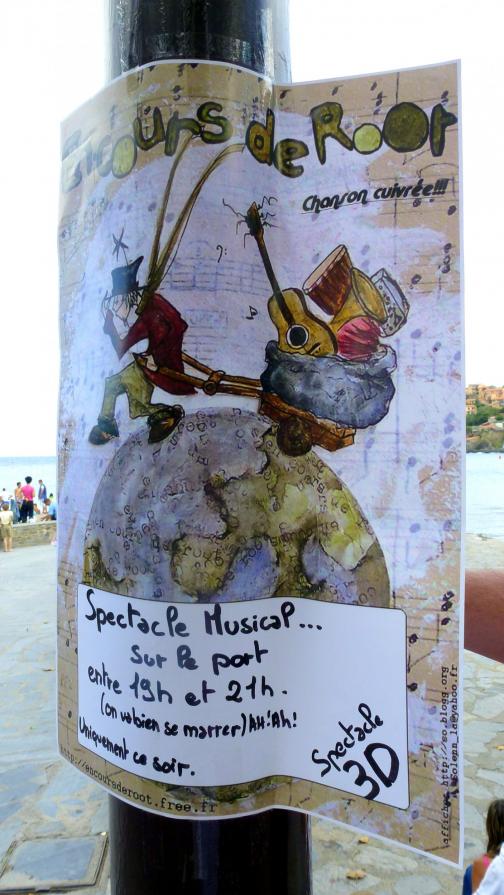 En cours de Root
Chanson cuivrée!!!
Spectacle Musical...
Sur le port
entre 19h et 21h.
(on va bien se marrer) Ah! Ah!
Uniquement ce soir.
Spectacle
3D
http://encoursderoot.free.fr
affiche: http://so.blogg.org